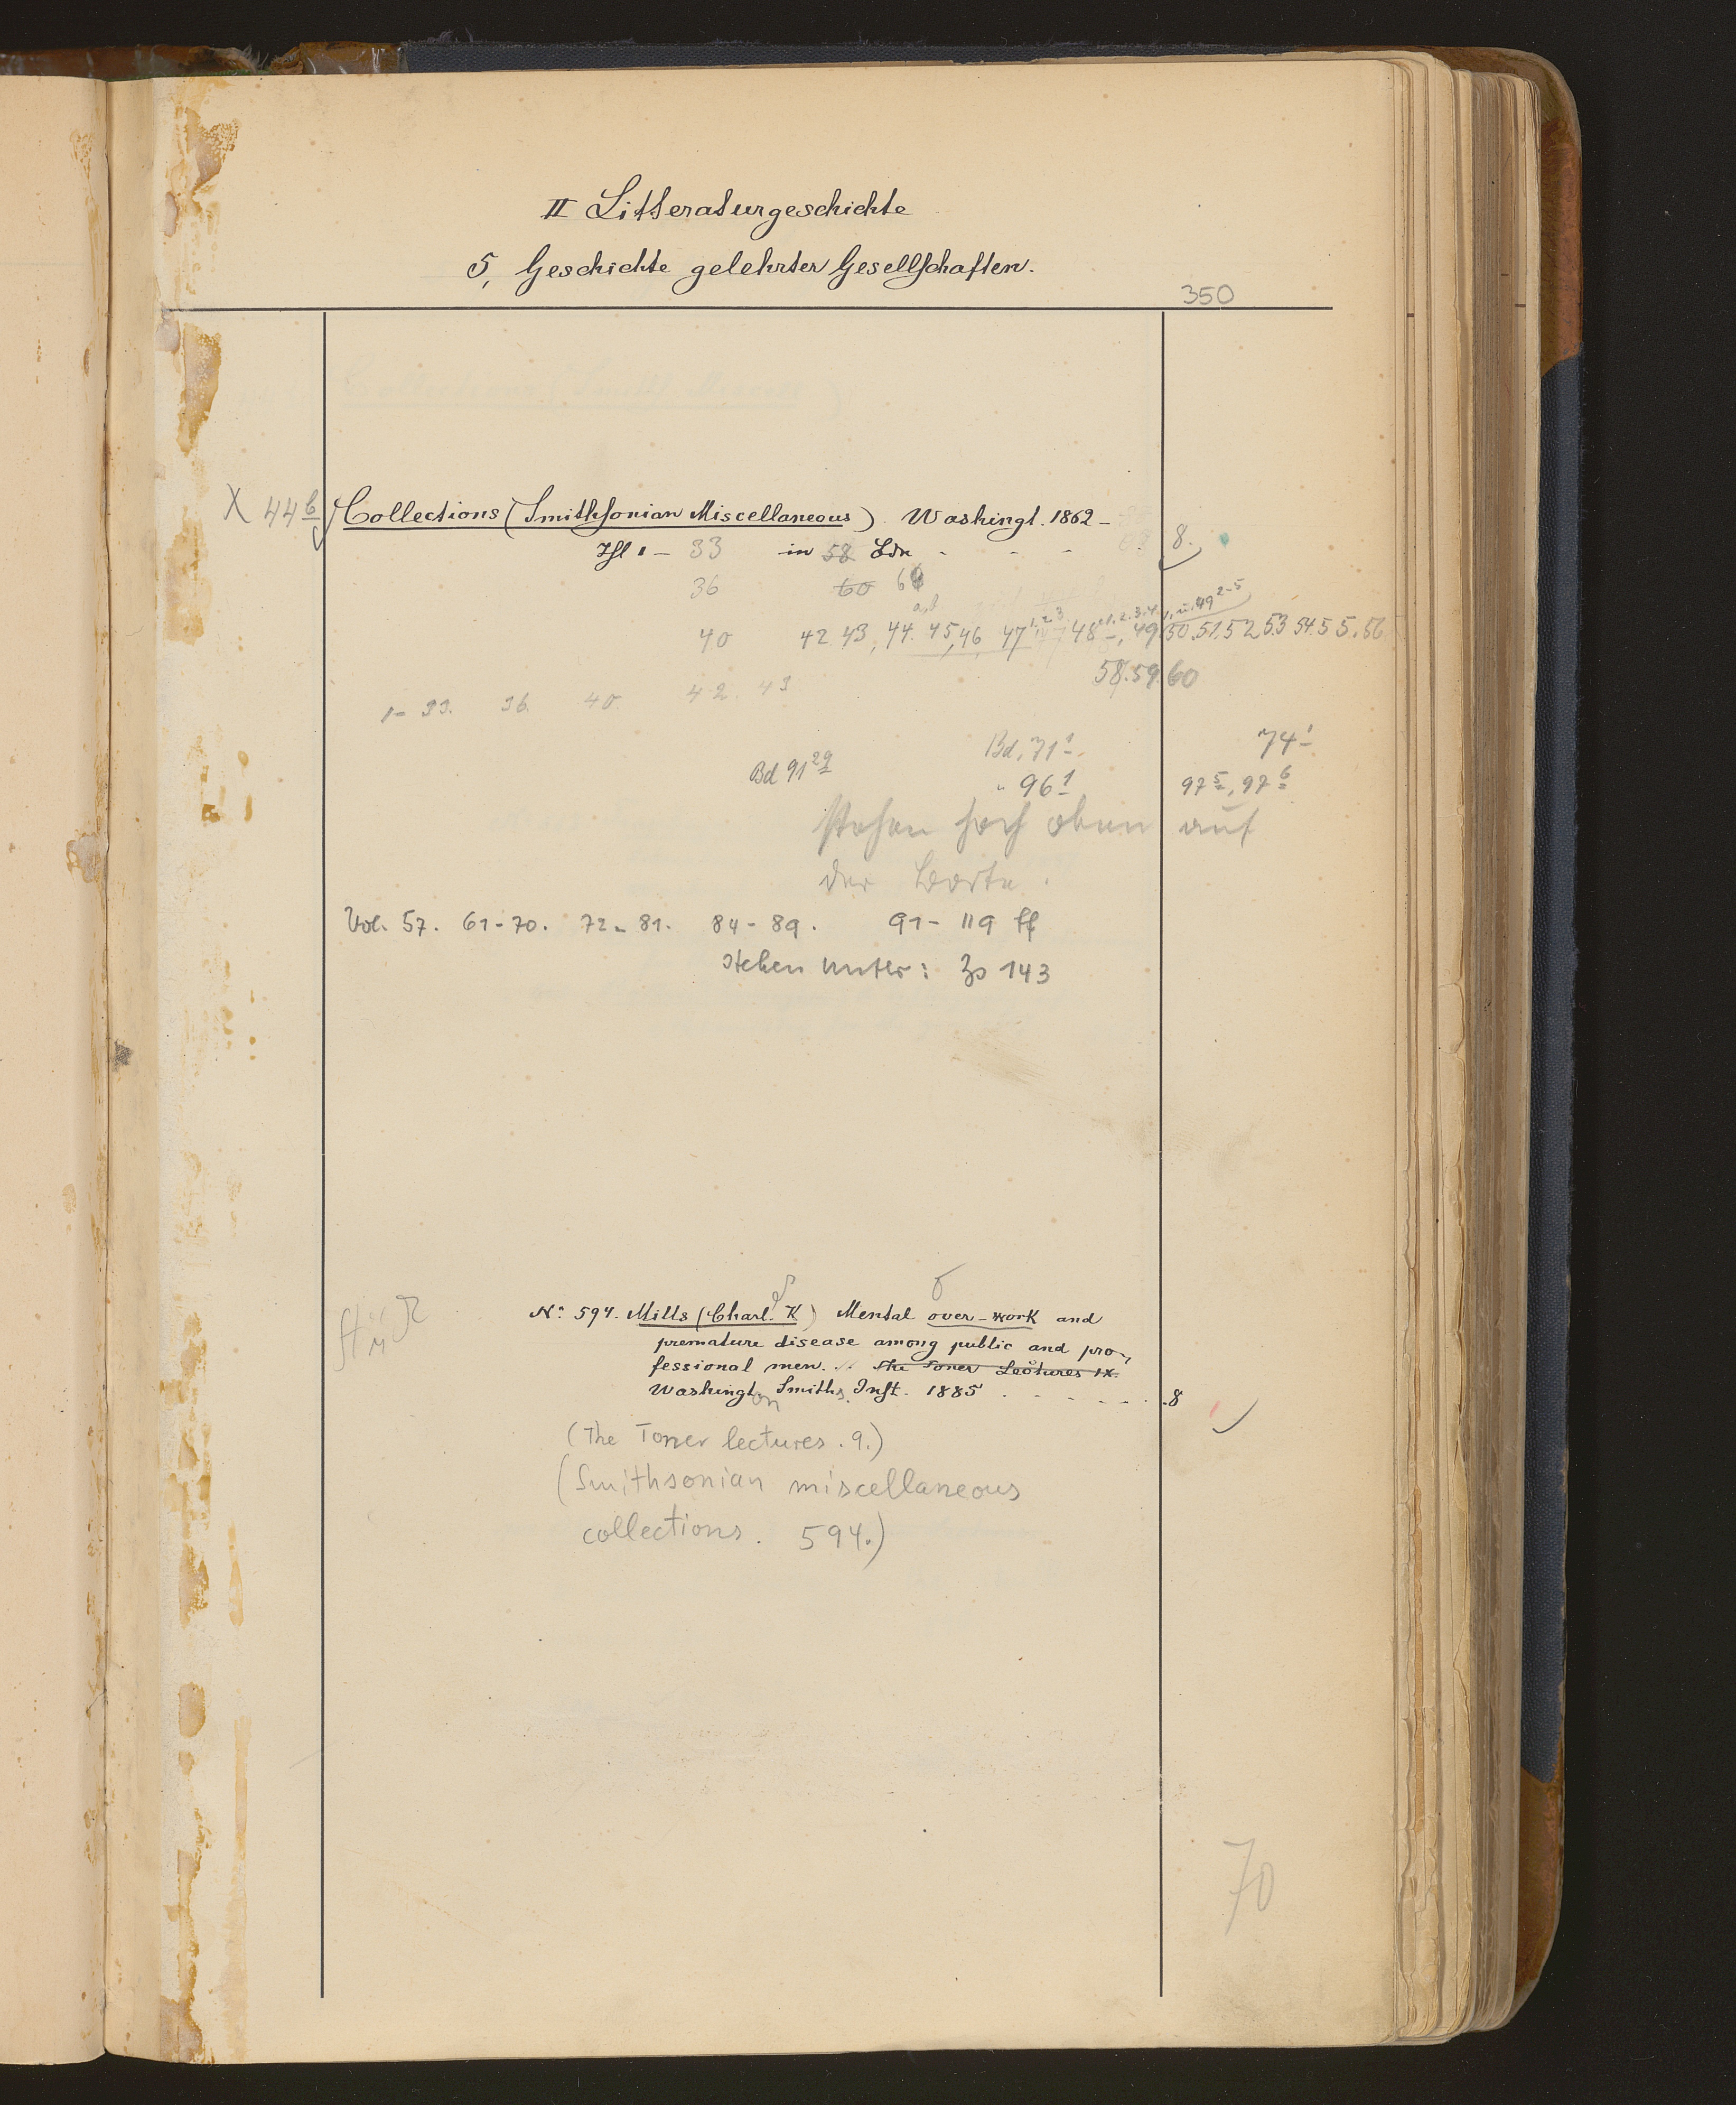 II Litteraturgeschichte
5, Geschichte gelehrter Gesellschaften.
350
X 44 b Collections (Smithsonian Miscellaneous). Washingt. 1862 -
1 - 33 in 58 Bdn - - - 8.
36 60
40 42 43, 44. 45, 46, 47 48 49 50. 51. 52 53 54. 55. 56
58. 59. 60
1- 33. 36. 40. 42. 43
Bd. 71 1 74 1
Bd 91 29 " 96 1 97 5, 97 6
stehen hoch oben auf
der Borte.
Vol. 57. 61-70. 72-81. 84-89. 91-119 ff
stehen unter: Zs 143
No 594. Mills (Charl. K) Mental over-work and
premature disease among public and pro-
fessional men. The Toner Lectures IX.
Washington Smiths. Inst. 1885 . - - - - - 8
(The Toner lectures. 9.)
(Smithsonian miscellaneous
collections. 594.)
70